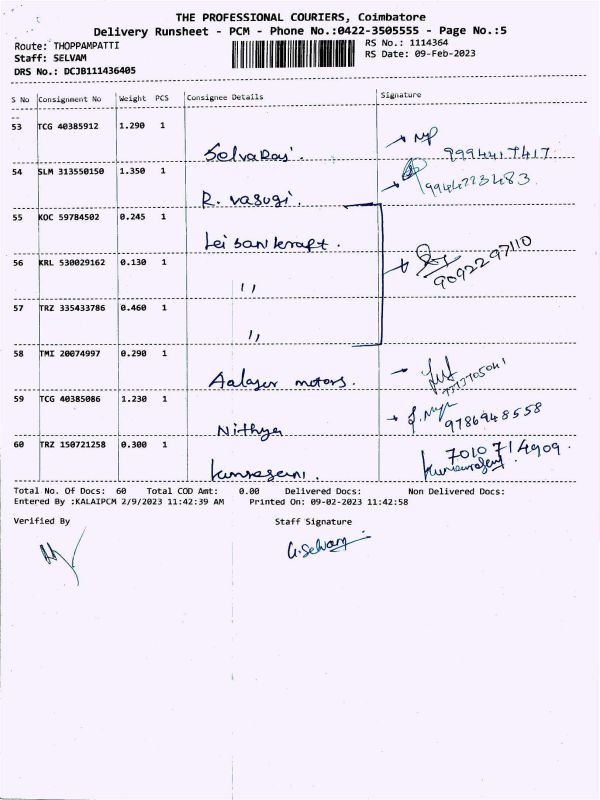 THE PROFESSIONAL COURIERS, Coimbatore
Delivery Runsheet - PCM - Phone No.:0422-3505555 - Page No.:5
Route: THOPPAMPATTI
RS No.: 1114364
Staff: SELVAM
RS Date: 09-Feb-2023
DRS No.: DCJB111436405
S No Consignment No Weight PCS Consignee Details Signature
--
53 TCG 40385912 1.290 1
Selvaraj.
9994417417
54 SLM 313550150 1.350 1
R. vasugi.
9944723483
55 KOC 59784502 0.245 1
56 KRL 530029162 0.130 1
,,
9092297110
57 TRZ 335433786 0.460 1
,,
58 TMI 20074997 0.290 1
motors.
59 TCG 40385086 1.230 1
Nithya
9786948558
60 TRZ 150721258 0.300 1
7010714909.
Total No. Of Docs: 60 Total COD Amt: 0.00 Delivered Docs: Non Delivered Docs:
Entered By :KALAIPCM 2/9/2023 11:42:39 AM Printed On: 09-02-2023 11:42:58
Verified By Staff Signature
G.Selvam